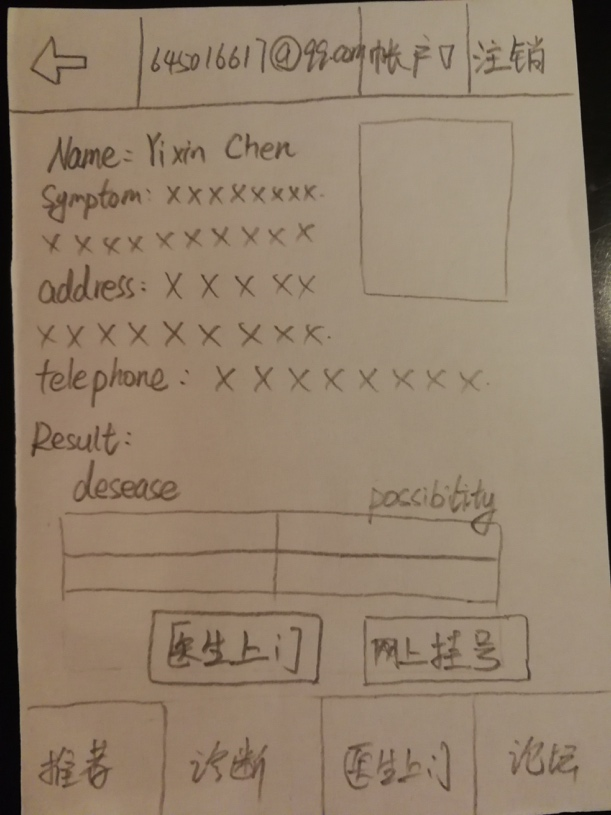 645016617@qq.com 帐户 注销
Name: Yixin Chen
Symptom: xxxxxxxx.
x x x x x x x x x x
address: x x x x x
x x x x x x x x x x.
telephone: x x x x x x x x.
Result:
desease possibitity
医生上门 网上挂号
推荐 诊断 医生上门 论坛